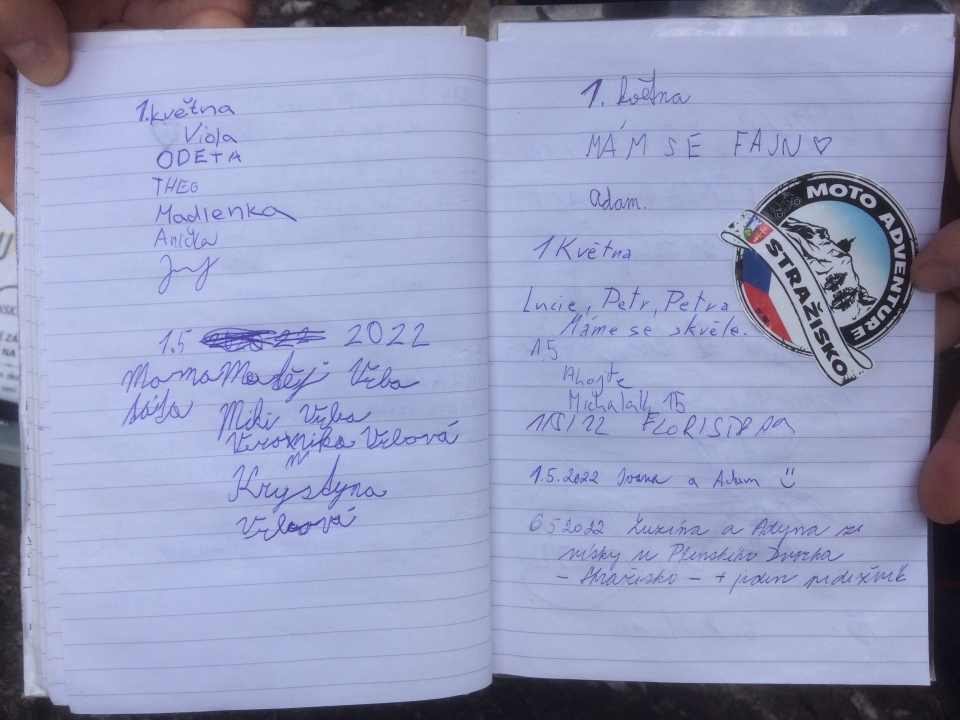 1. května
Viola
ODETA
THEO
Madlenka
Anička
1.5 2022
Mama Matěj Vrba
táta Miki Vrba
Veronika Vrbová
Krystyna
Vrbová
1. května
MÁM SE FAJN ♡
Adam.
1 Května
Lucie, Petr, Petra
Máme se skvěle.
1.5
Ahojte
1/5/22
1.5.2022 Ivana a Adam
6 5 2022 Zuzína a Adyna ze
- Stražisko - + jeden
MOTO ADVENTURE
STRAŽISKO